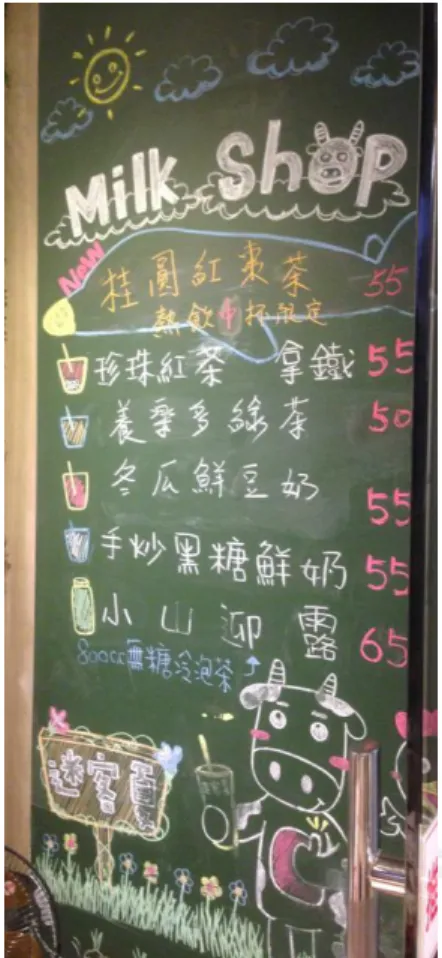 Milk Shop
New
桂圓紅棗茶 55
熱飲中杯限定
珍珠紅茶 拿鐵 55
養樂多綠茶 50
冬瓜鮮豆奶 55
手炒黑糖鮮奶 55
小山迎露 65
800cc無糖冷泡茶↑
迷客夏